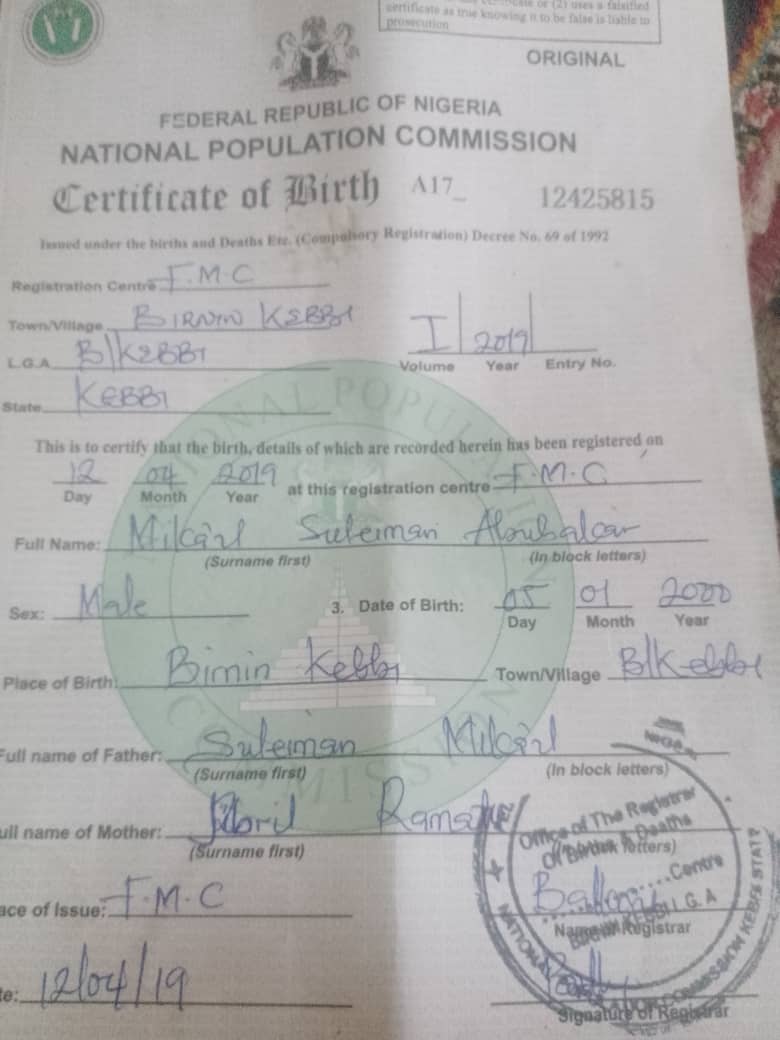 certificate or (2) uses a falsified
certificate as true knowing it to be false is liable to
prosecution
ORIGINAL
FEDERAL REPUBLIC OF NIGERIA
NATIONAL POPULATION COMMISSION
Certificate of Birth A17_ 12425815
Issued under the births and Deaths Etc. (Compulsory Registration) Decree No. 69 of 1992
Registration Centre F.M.C
Town/Village BIRNIN KEBBI
L.G.A B/KEBBI
I 2019
Volume Year Entry No.
State KEBBI
This is to certify that the birth, details of which are recorded herein has been registered on
12 04 2019 at this registration centre F.M.C
Day Month Year
Full Name: Mikail Suleiman Abubakar
(Surname first) (In block letters)
Sex: Male 3. Date of Birth: 05 01 2000
Day Month Year
Place of Birth: Birnin Kebbi Town/Village B/Kebbi
Full name of Father: Suleiman Mikail
(Surname first) (In block letters)
ull name of Mother:
(Surname first) letters)
ace of Issue: F.M.C
Name of Registrar
te: 12/04/19
Signature of Registrar
Office of The Registrar
Of Births & Deaths
Centre
BIRNIN KEBBI L.G.A
NATIONAL POPULATION COMMISSION KEBBI STATE
NATIONAL POPULATION COMMISSION